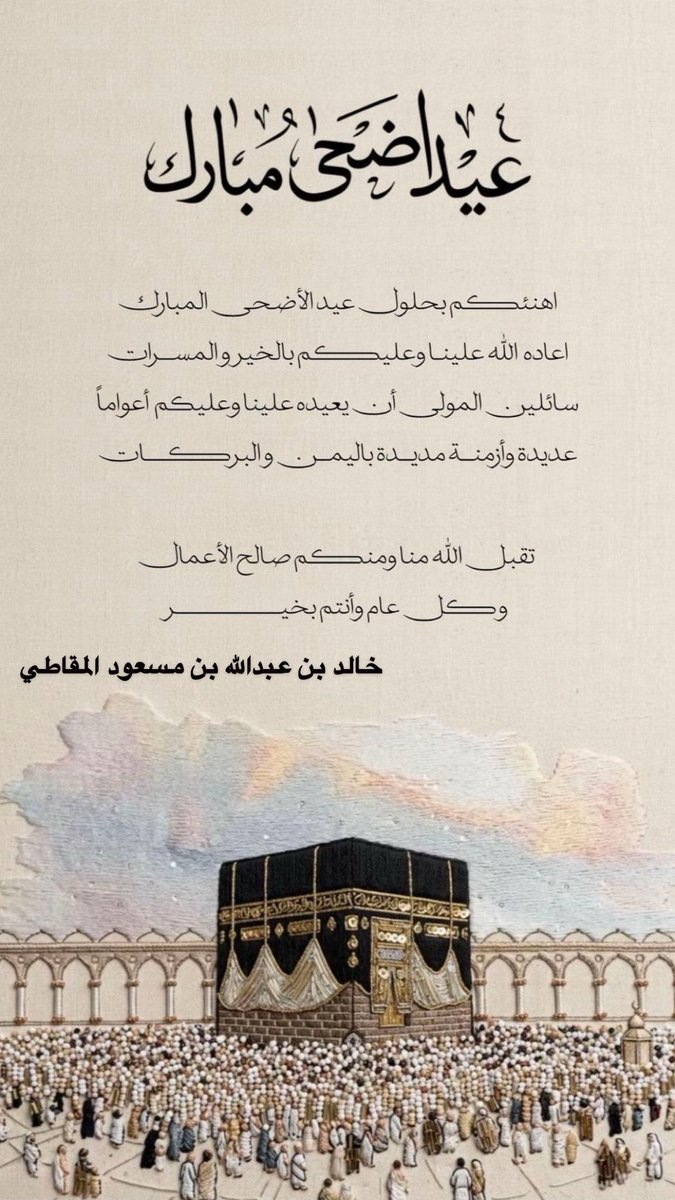 عيد اضحى مبارك
اهنئكم بحلول عيد الأضحى المبارك
اعاده الله علينا وعليكم بالخير والمسرات
سائلين المولى أن يعيده علينا وعليكم أعواماً
عديدة وأزمنة مديدة باليمن والبركات
تقبل الله منا ومنكم صالح الأعمال
وكل عام وأنتم بخير
خالد بن عبدالله بن مسعود المقاطي